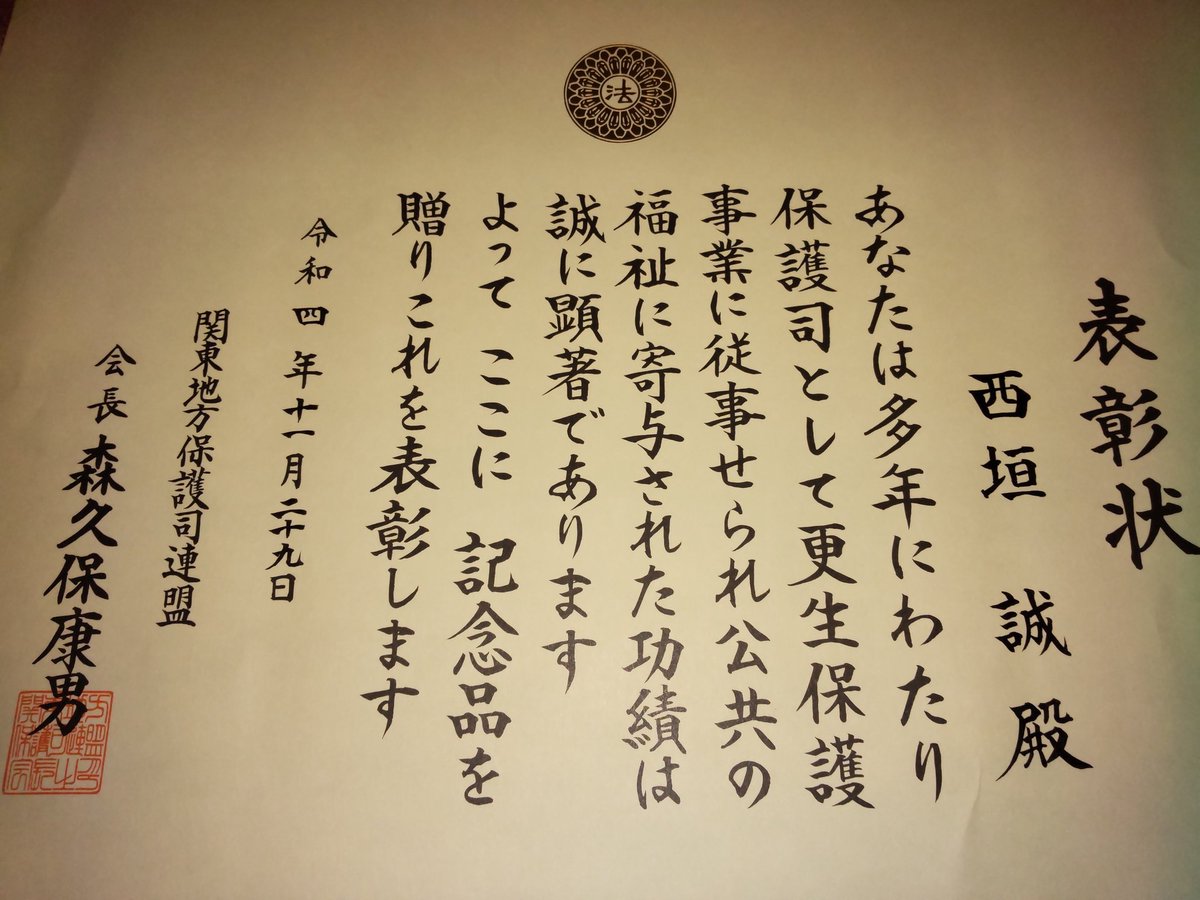 法
表彰状
西垣 誠 殿
あなたは多年にわたり
保護司として更生保護
事業に従事せられ公共の
福祉に寄与された功績は
誠に顕著であります
よって ここに 記念品を
贈りこれを表彰します
令和四年十一月二十九日
関東地方保護司連盟
会長 森久保康男